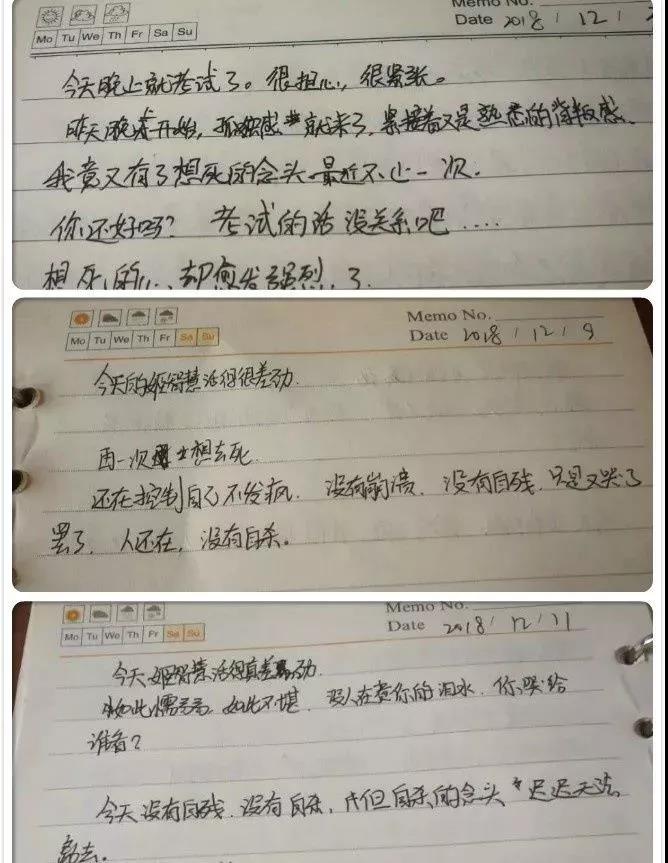 Memo No.
Mo Tu We Th Fr Sa Su
Date 2018 / 12 /
今天晚上就考试了。很担心,很紧张。
昨天晚 开始,孤独感 就来了,紧接着又是熟悉的背叛感.
我竟又有了想死的念头 最近不止一次.
你还好吗? 考试的话没关系吧....
想死的心,却愈发强烈了.
Memo No.
Mo Tu We Th Fr Sa Su
Date 2018 / 12 / 9
今天的 智慧活得很差劲.
再一次 想去死.
还在控制自己不发疯. 没有崩溃. 没有自残. 只是又哭了
罢了. 人还在, 没有自杀。
Memo No.
Mo Tu We Th Fr Sa Su
Date 2018 / 12 / 11
今天 智慧活得真差 劲.
如此懦弱, 如此不堪. 没人在意你的泪水. 你哭给
谁看?
今天没有自残. 没有自杀, 但自杀的念头 迟迟无法
离去.